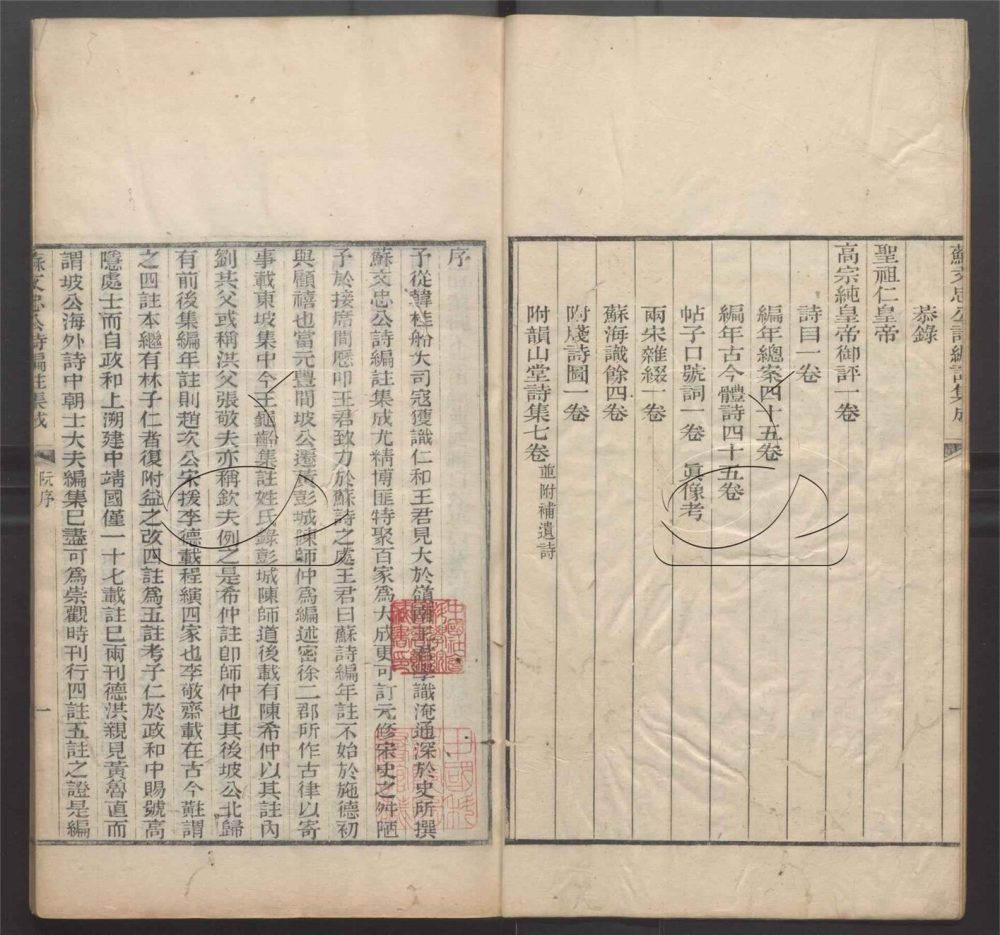 蘇文忠公詩編註集成
恭錄
聖祖仁皇帝
高宗純皇帝御評一卷
詩目一卷
編年總案四十五卷
編年古今體詩四十五卷
帖子口號詞一卷 真像考
兩宋雜綴一卷
蘇海識餘四卷
附牋詩圖一卷
附韻山堂詩集七卷 並附補遺詩
序
予從韓桂舲大司寇獲識仁和王君見大於嶺南王君學識淹通深於史所撰
蘇文忠公詩編註集成尤精博匪特聚百家為大成更可訂元修宋史之舛陋
予於接席間應叩王君致力於蘇詩之處王君曰蘇詩編年註不始於施德初
與顧禧也當元豐間坡公遷黃彭城陳師仲為編述密徐二郡所作古律以寄
事載東坡集中今王龜齡集註姓氏錄彭城陳師道後載有陳希仲以其註內
劉共父或稱洪父張敬夫亦稱欽夫例之是希仲註卽師仲也其後坡公北歸
有前後集編年註則趙次公宋援李德載程縯四家也李敬齋載在古今黈謂
之四註本繼有林子仁者復附益之改四註為五註考子仁於政和中賜號高
隱處士而自政和上溯建中靖國僅一十七載註已兩刊德洪親見黃魯直而
謂坡公海外詩中朝士大夫編集已盡可為崇觀時刊行四註五註之證是編
蘇文忠公詩編註集成
阮序
一